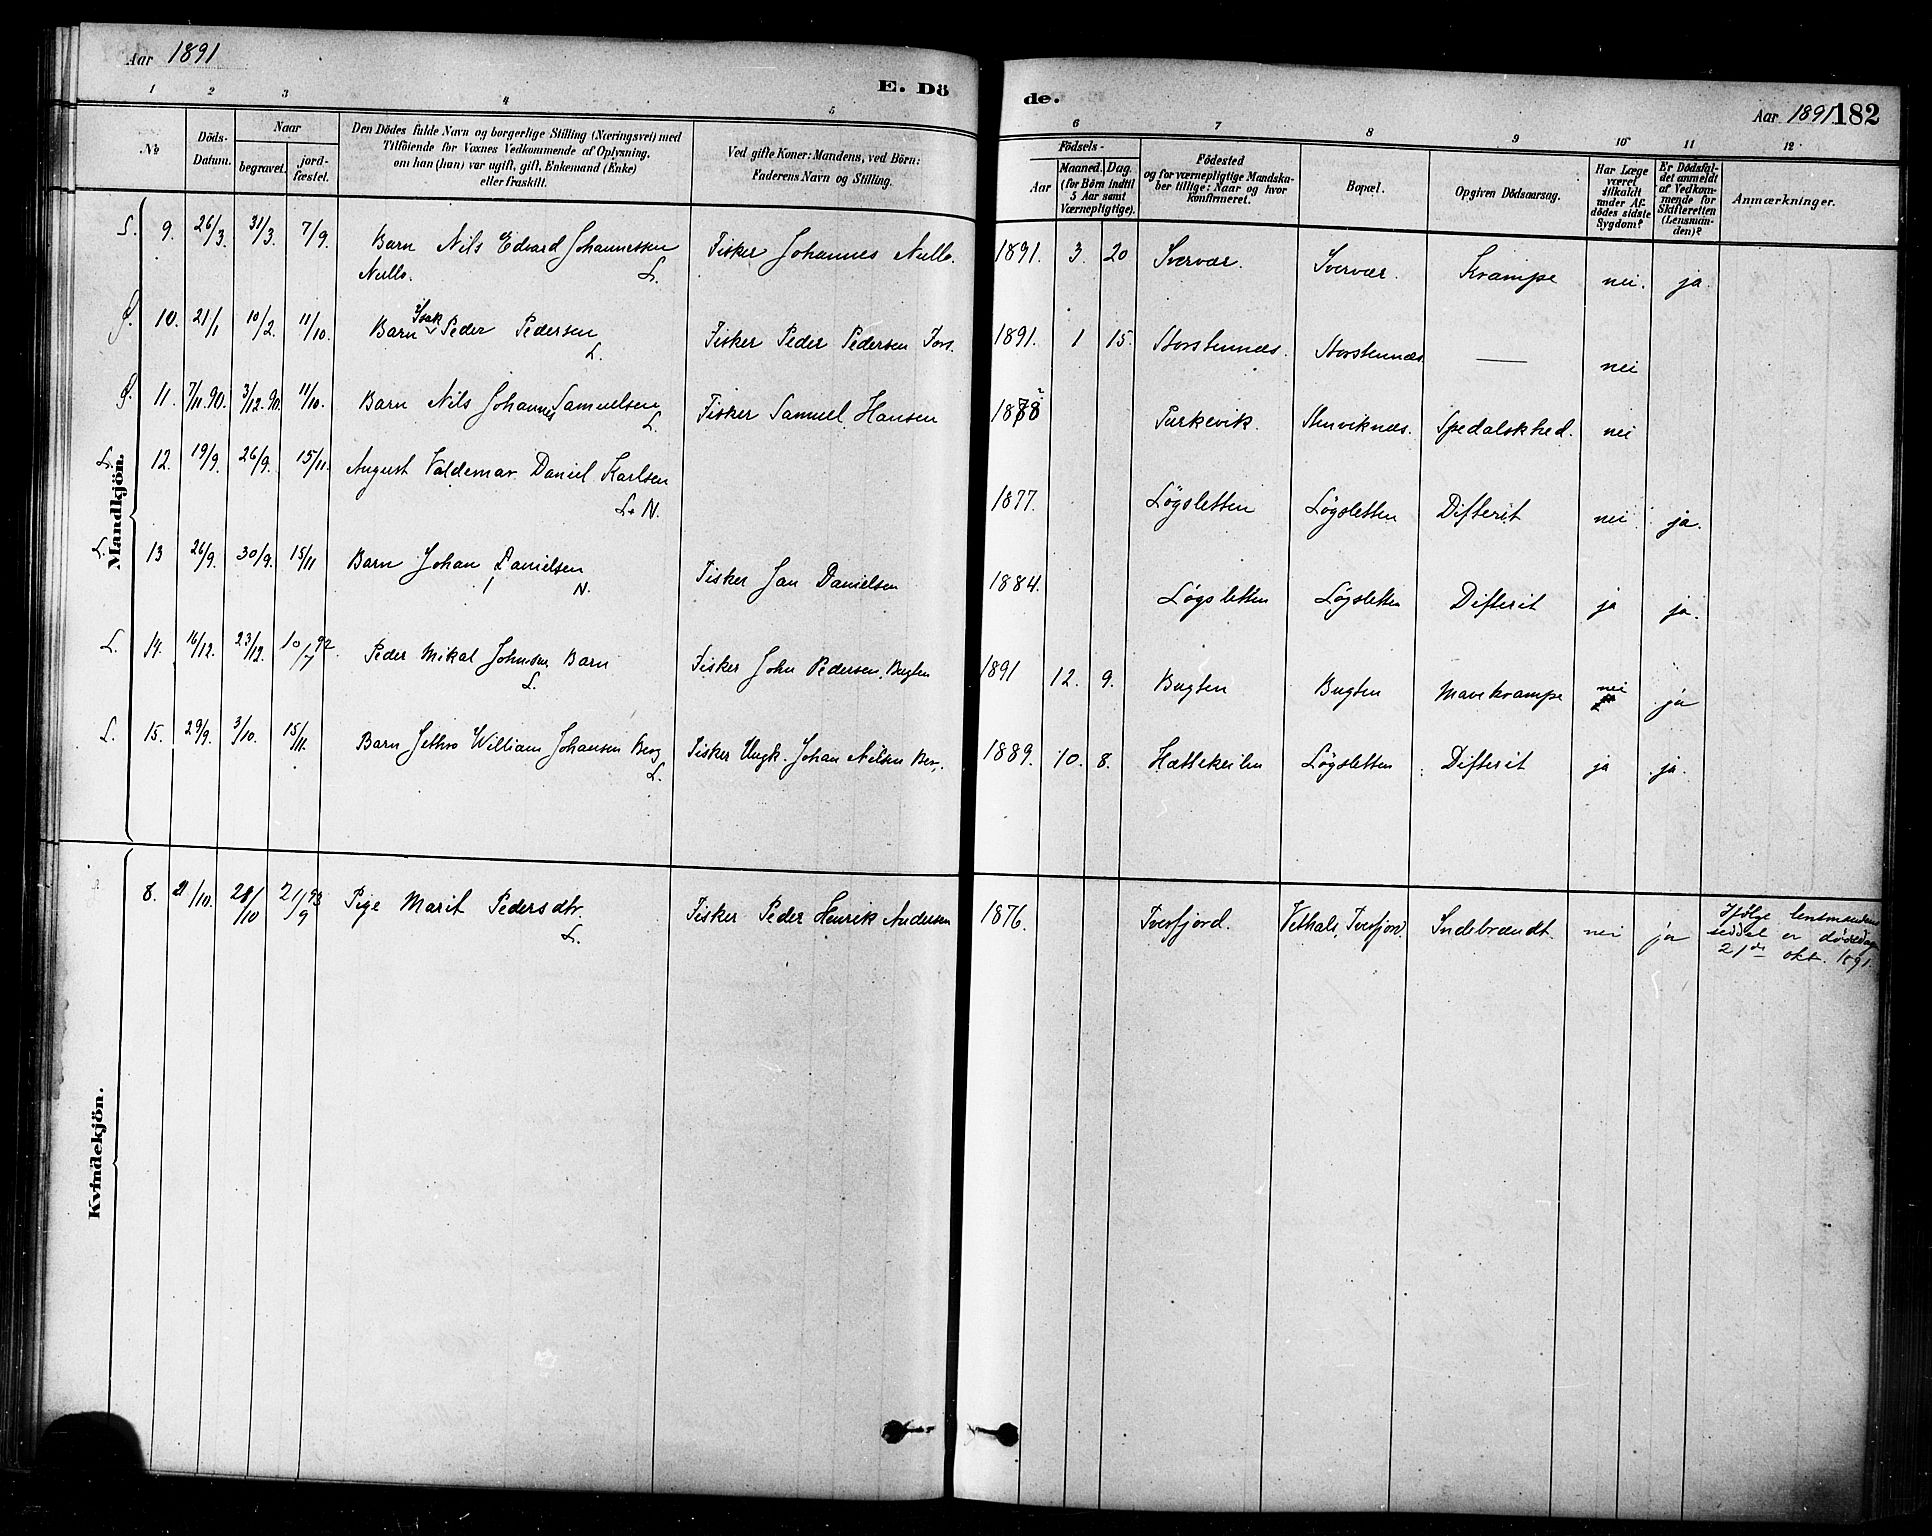 Aar 1891
E. Dö
de.
Aar 1891 182
1 2 3 4 5 6 7 8 9 10 11 12
№
Döds-
Datum.
Naar
begravet.
jord-
fæstet.
Den Dödes fulde Navn og borgerlige Stilling (Næringsvei) med
Tilföiende for Voxnes Vedkommende af Oplysning,
om han (hun) var ugift, gift, Enkemand (Enke)
eller fraskilt.
Ved gifte Koner: Mandens, ved Börn:
Faderens Navn og Stilling.
Födsels-
Aar
Maaned. Dag.
(for Börn indtil
5 Aar samt
Værnepligtige).
Födested
og for værnepligtige Mandska-
ber tillige: Naar og hvor
konfirmeret.
Bopæl.
Opgiven Dödsaarsag.
Har Læge
været
tilkaldt
under Af-
dödes sidste
Sygdom?
Er Dödsfal-
det anmeldt
af Vedkom-
mende for
Skifteretten
(Lensman-
den)?
Anmærkninger.
Mandkjön.
9. 26/3. 31/3. 7/9. Barn Nils Edvard Johannessen Fisker Johannes Nullo. 1891. 3. 20 Svervær. Svervær. Krampe nei. ja.
Nullo. L.
Isak
10. 21/1 10/2. 11/10. Barn Peder Pedersen Fisker Peder Pedersen 1891. 1 15. Storstennæs. Storstennæs. — nei
L.
11. 7/11.90. 3/12.90. 11/10. Barn Nils Johannes Samuelsen Fisker Samuel Hansen 1878 Purkevik. Stenviknæs. Spedalskhed. nei
L.
L. 12. 19/9. 26/9. 15/11. August Valdemar Daniel Karlsen 1877. Løgsletten Løgsletten Difterit nei ja.
L. N.
L. 13 26/9. 30/9. 15/11 Barn Johan Danielsen Fisker Jan Danielsen 1884. Løgsletten Løgsletten Difterit ja ja.
N.
L. 14. 16/12. 23/12. 10/7 92. Peder Mikal Johnsen Barn Fisker John Pedersen, Bugten 1891 12. 9. Bugten Bugten Mavekrampe nei ja
L.
L. 15. 29/9. 3/10. 15/11. Barn Jethro William Johansen Berg Fisker Ungk. Johan Nilsen Ber. 1889. 10. 8. Hættekeilen Løgsletten Difterit ja ja.
L.
Kvindekjön.
8. 21/10. 28/10 21/9 93 Pige Marit Pedersdtr. Fisker Peder Henrik Andersen 1876. Tverfjord. Vethals, Tverfjord. Indebrændt. nei ja
L.
Ifølge lensmandens
seddel er dødsdagen
21de okt. 1891.